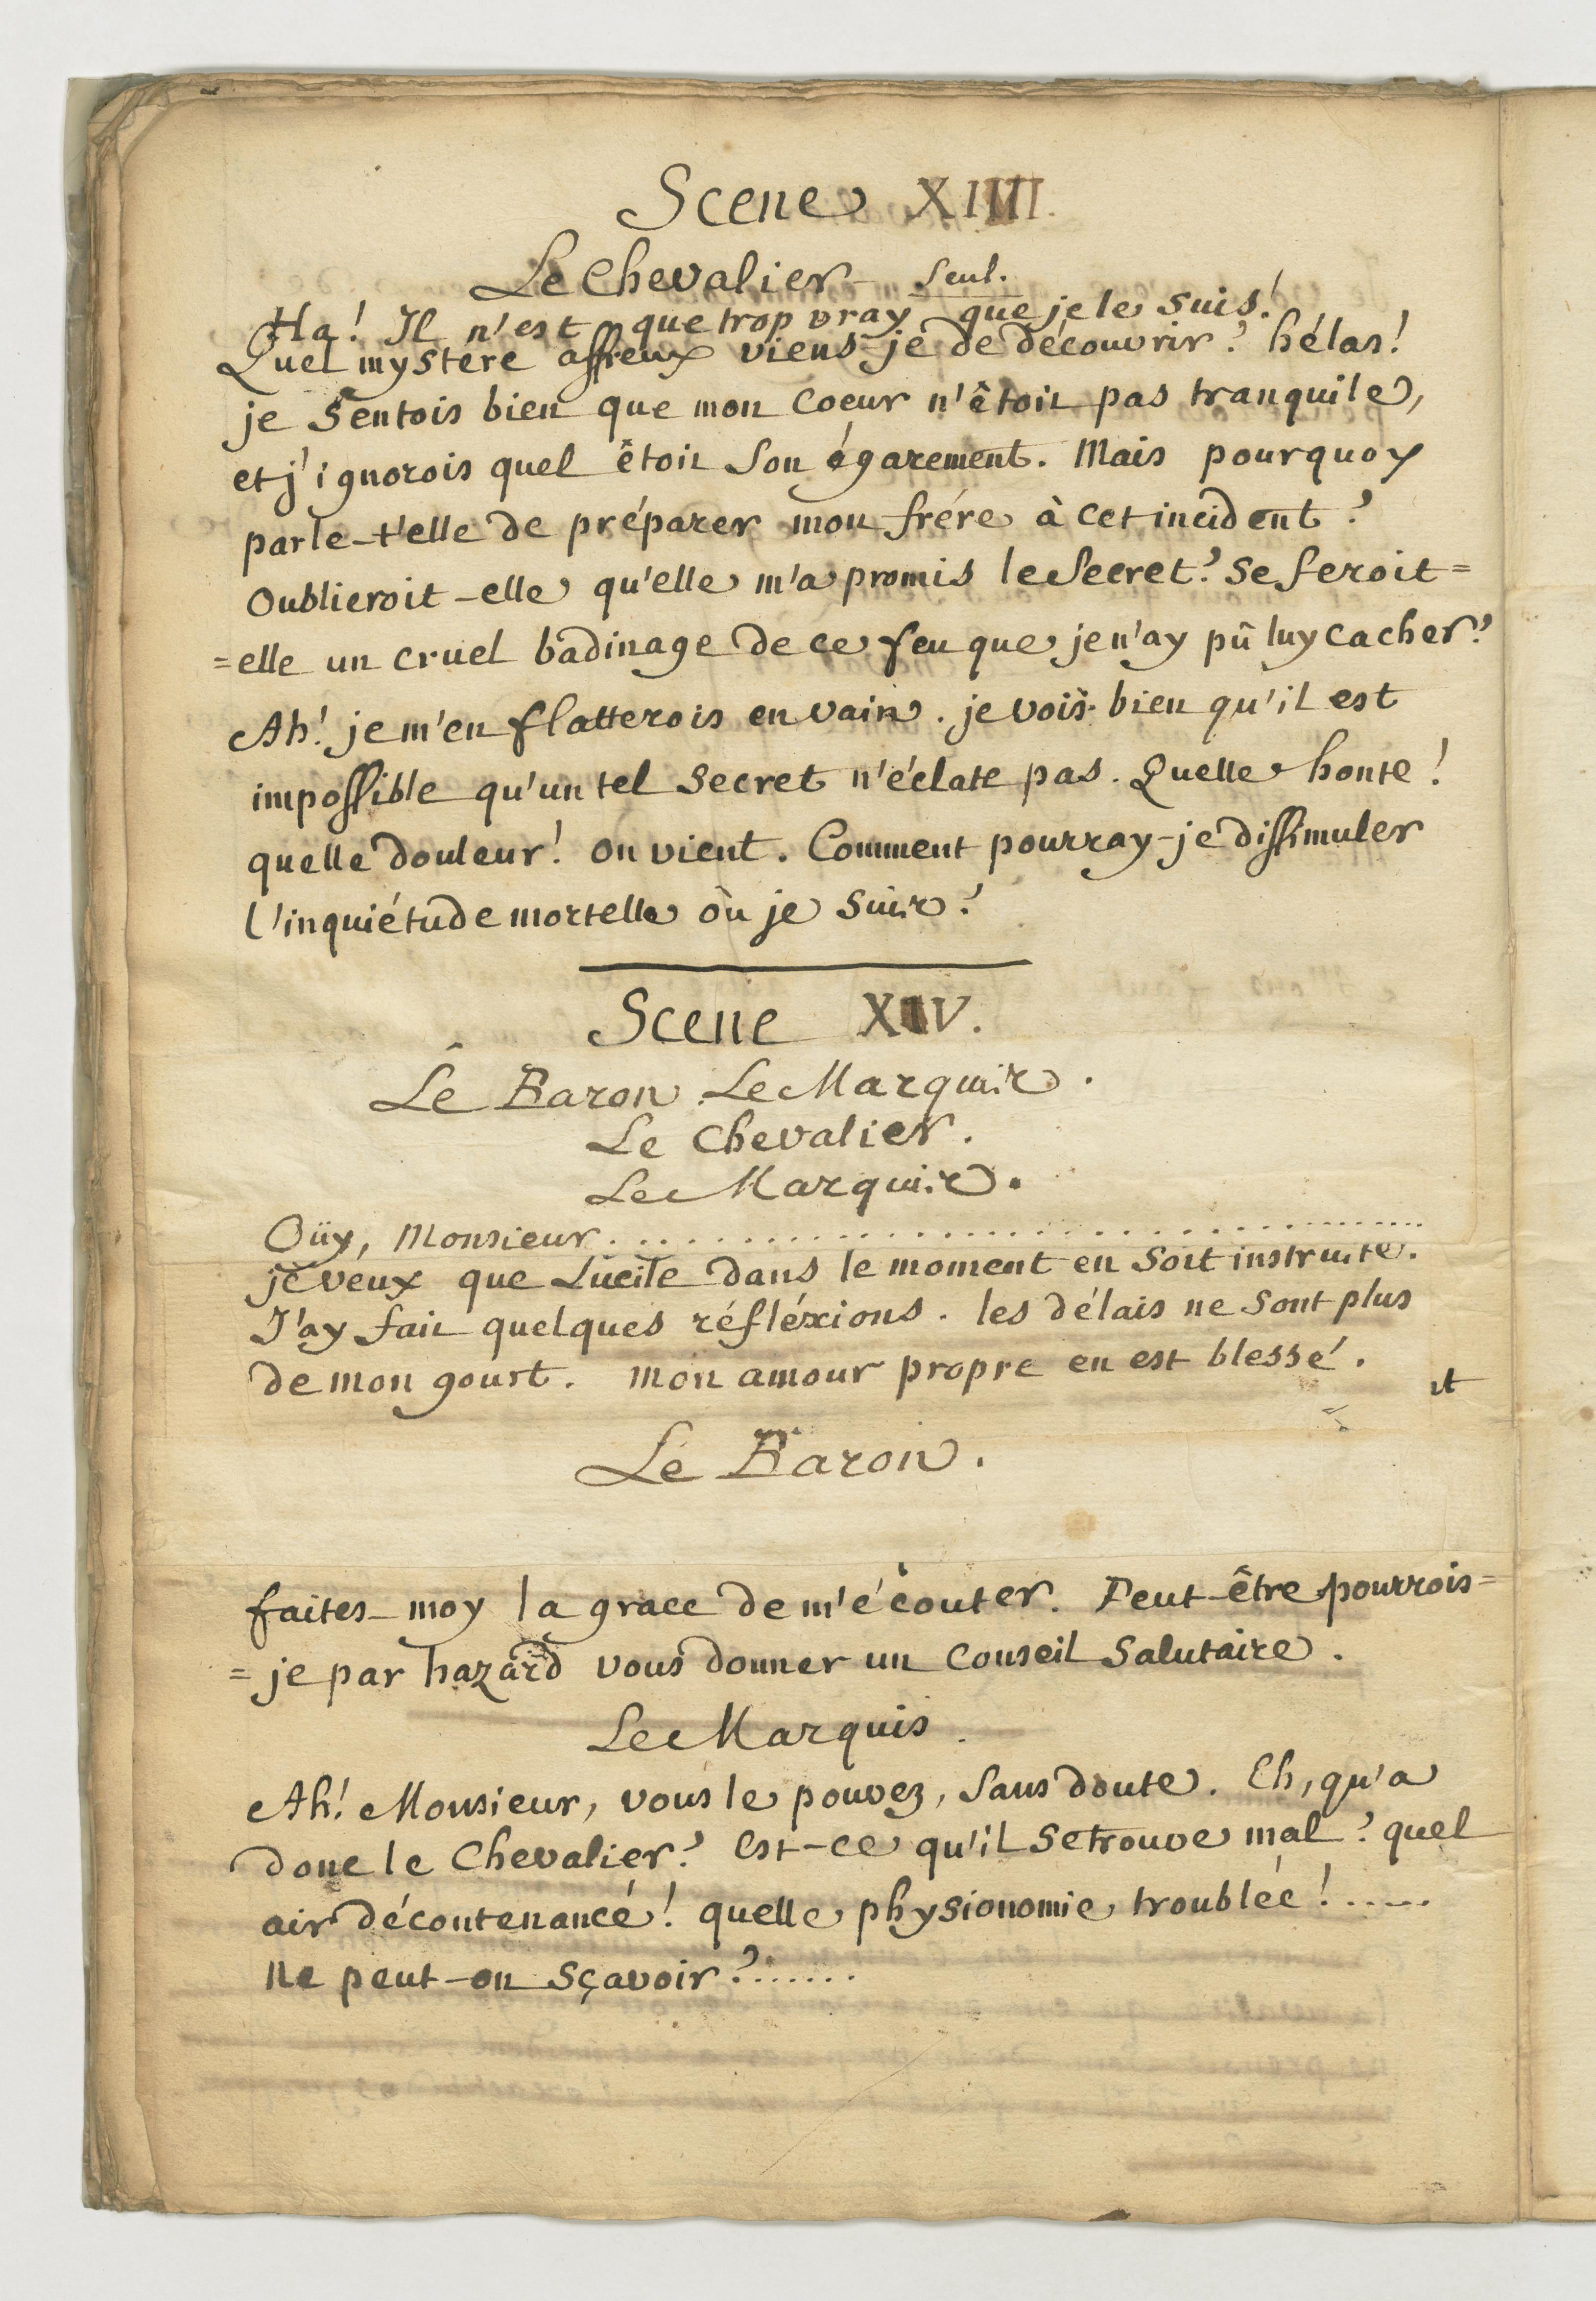 Scene XIIII.
Le Chevalier seul.
Ha! Il n'est que trop vray que je le suis!
Quel mystere affreux viens-je de découvrir? hélas!
je sentois bien que mon coeur n'êtoit pas tranquile,
et j'ignorois quel êtoit son égarement. Mais pourquoy
parle-t'elle de préparer mon frére à cet incident?
Oublieroit-elle qu'elle m'a promis le secret? se feroit=
=elle un cruel badinage de ce feu que je n'ay pû luy cacher?
Ah! je m'en flatterois en vain. je vois bien qu'il est
impossible qu'un tel secret n'éclate pas. Quelle honte!
quelle douleur! on vient. Comment pourray-je dissimuler
l'inquiétude mortelle où je suis?
Scene XIV.
Le Baron Le Marquis.
Le Chevalier.
Le Marquis.
Oüy, Monsieur..............................
je veux que Lucile dans le moment en soit instruite.
J'ay fait quelques réfléxions. les délais ne sont plus
de mon goust. mon amour propre en est blessé. et
Le Baron.
faites-moy la grace de m'écouter. Peut-être pourrois=
=je par hazard vous donner un conseil salutaire.
Le Marquis.
Ah! Monsieur, vous le pouvez, sans doute. Eh, qu'a
donc le Chevalier? Est-ce qu'il se trouve mal? quel
air décontenancé! quelle physionomie troublée!......
Ne peut-on sçavoir?.......